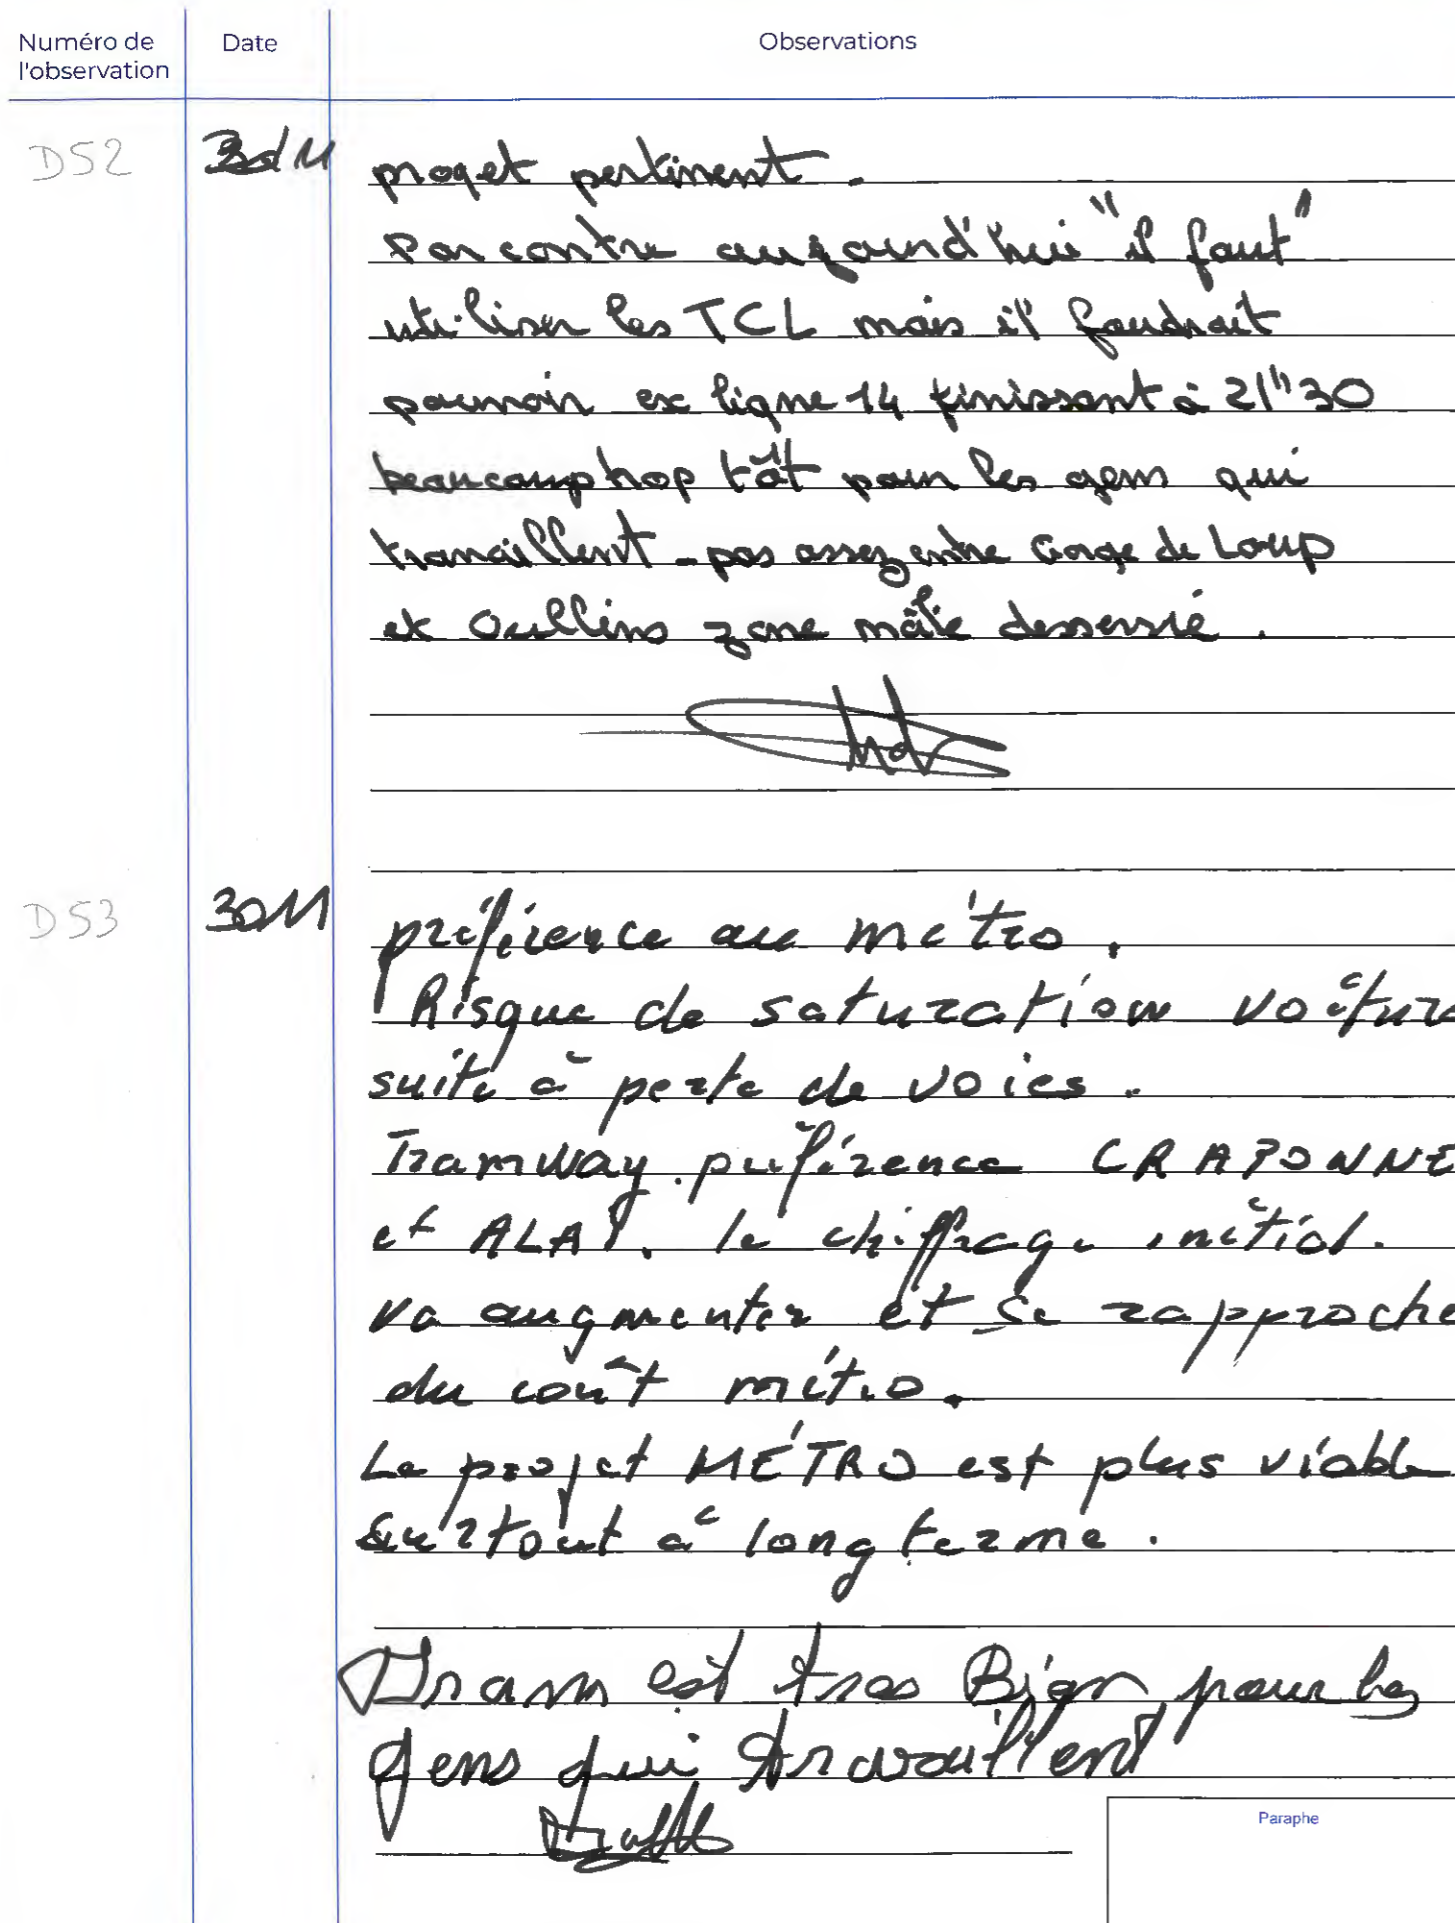 Numéro de
l'observation
Date
Observations
D52
proget pertinent.
Par contre aujourd'hui "il faut"
utiliser les TCL mais il faudrait
pouvoir ex ligne 14 finissant à 21h30
beaucoup trop tôt pour les gens qui
travaillent - pas assez entre Gorge de Loup
et Oullins zone mâle desservie.
D53
30M
préférence au métro.
Risque de saturation voiture
suite à perte de voies.
Tramway préférence CRAPONNE
et ALAÏ. le chiffrage initial.
va augmenter et se rapproche
du coût métro.
Le projet MÉTRO est plus viable
surtout à long terme.
Tram est tres Bien pour les
gens qui travaillent
Paraphe